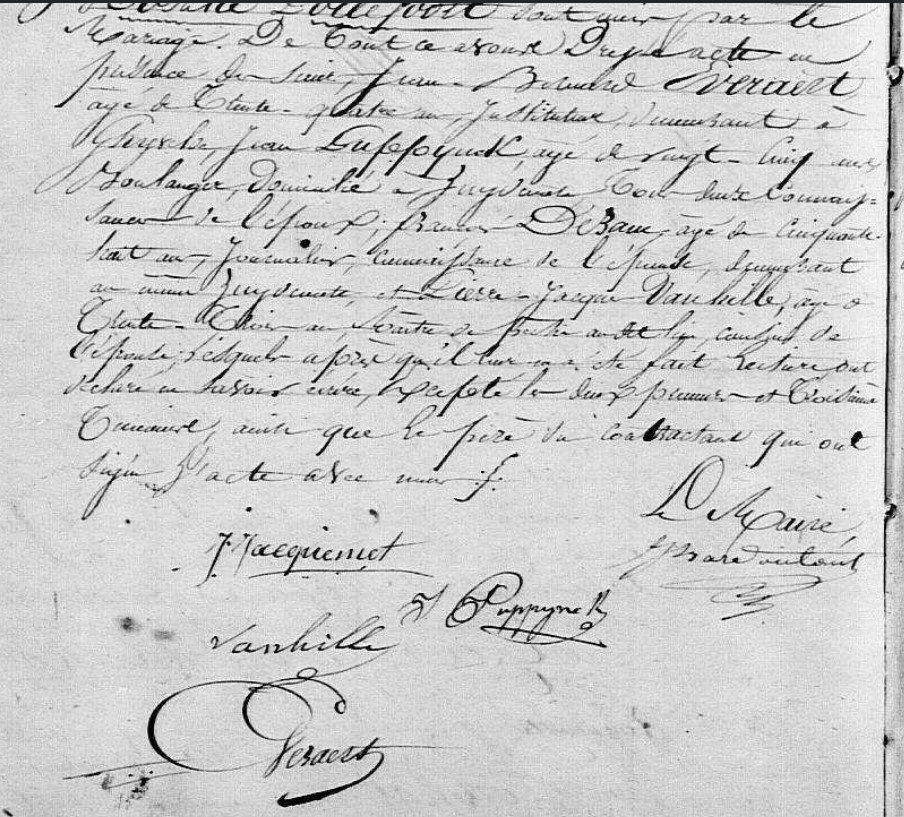 sont unis par le
Mariage. De tout ce avons Dressé acte en
présence des Sieurs, Jean Bernard Everaert
âgé de Trente-quatre ans, Instituteur, demeurant à
Ghyvelde, Jean Puppynck, agé de vingt-cinq ans
Boulanger, Domicilié à Zuydcoote, Tous deux Connais=
sances de l'époux; francois Dezane, âgé de Cinquante-
huit ans, Journalier, connaissance de l'épouse, demeurant
au même Zuydcoote, et Pierre-Jacques Vanhille, âgé de
Trente-Trois ans, Maître de poste au dit lieu, cousin de
l'épouse; lesquels après qu'il leur en a été fait lecture, ont
déclaré ne savoir écrire, excepté les deux premiers et Troisième
Témoins, ainsi que le père du contractant qui ont
signé l'acte avec nous
Le Maire,
J Jacquemot
J Puppynck
Vanhille
Everaert